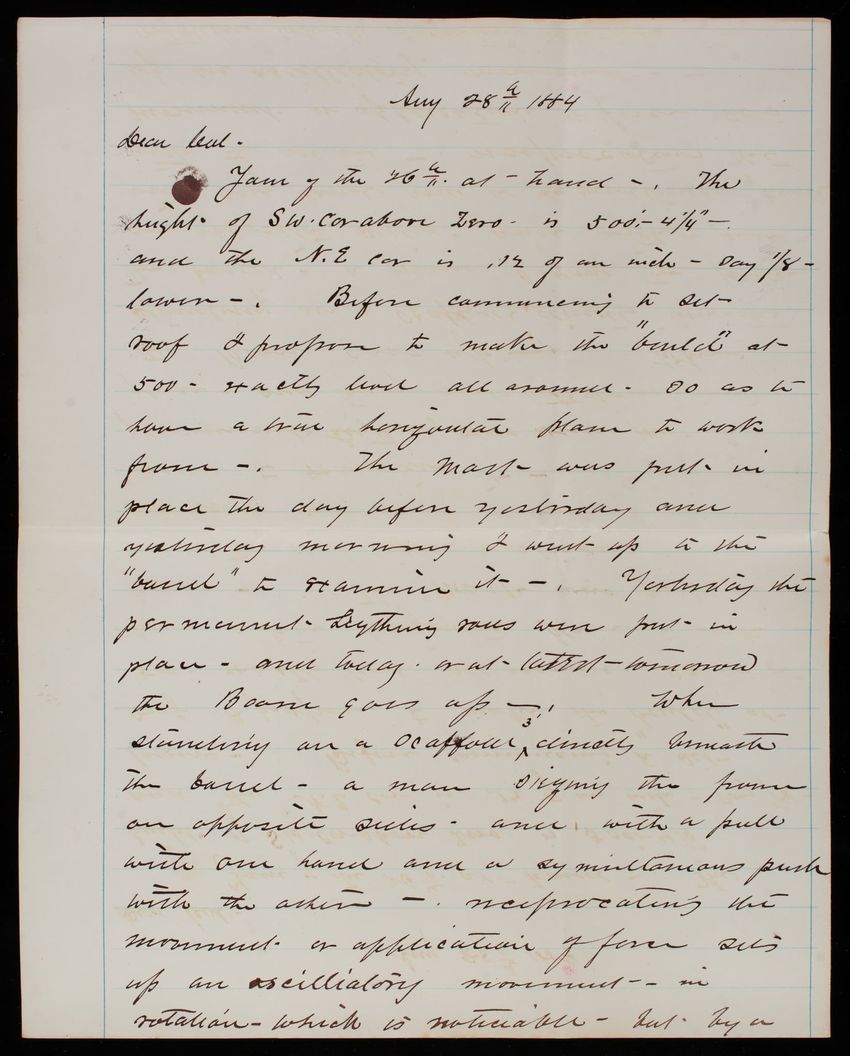 Aug 28th 1884
Dear Col -
Yours of the 26th. at hand - . The
hight of S W. Cor above Zero - is 500'.- 4 1/4" -
and the N. E cor is .12 of an inch - Say 1/8 -
lower - . Before commencing to set
roof I propose to make the "build" at
500 - exactly level all around - So as to
have a true horizontal plane to work
from - . The Mast was put in
place the day before yesterday and
yesterday morning I went up to the
"barrel" to examine it - . Yesterday the
permanent rods were put in
place - and today or at latest - tomorrow
the Boom goes up - ! When
standing on a scaffold 3' directly beneath
the barrel - a man the frame
on opposite sides - and with a pull
with one hand and a symultaneous push
with the other - . reciprocating the
movement or application of force sets
up an oscilliatory movement - in
rotation - which is noticiable - but by a